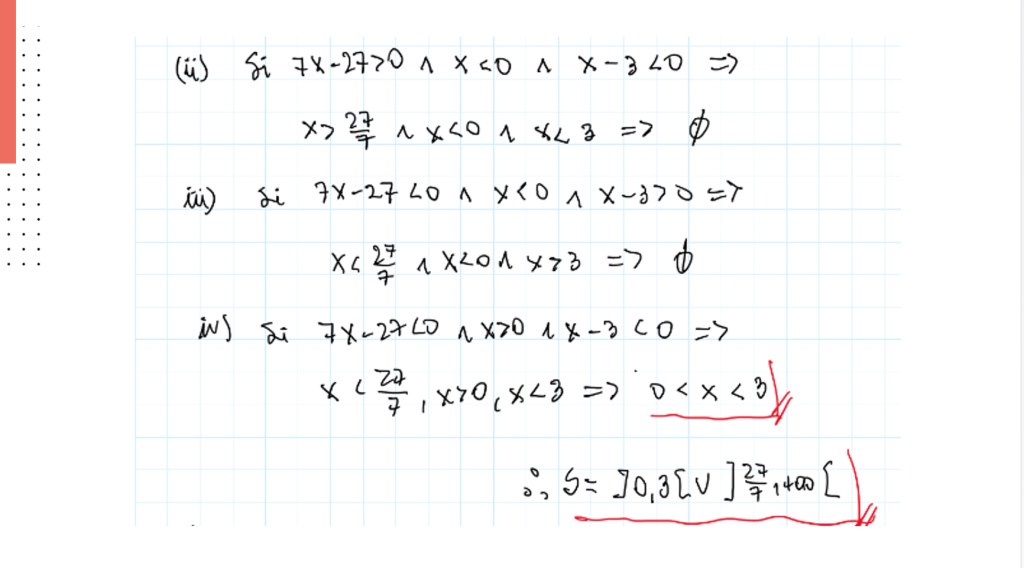 (ii) Si 7x-27>0 ∧ x<0 ∧ x-3<0 =>
x> 27/7 ∧ x<0 ∧ x<3 => ϕ
iii) Si 7x-27<0 ∧ x<0 ∧ x-3>0 =>
x< 27/7 ∧ x<0 ∧ x>3 => ϕ
iv) Si 7x-27<0 ∧ x>0 ∧ x-3<0 =>
x < 27/7 , x>0 , x<3 => 0 < x < 3
∴ S= ]0,3[ ∪ ]27/7, +∞[